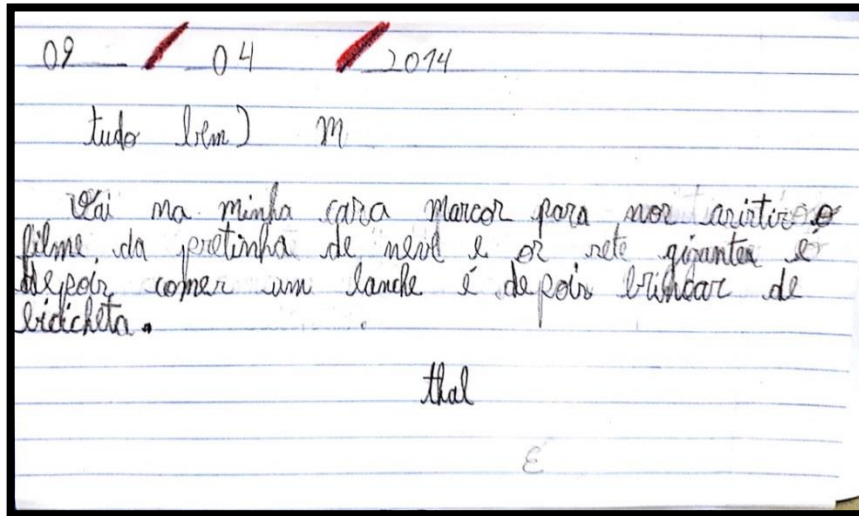 09 / 04 / 2014
tudo bem) m
Vai na minha cara marcor para nor arirtir o
filme da pretinha de neve e or rete gigantes e
depoir comer um lanche é depoir brincar de
bicicheta.
thal
E